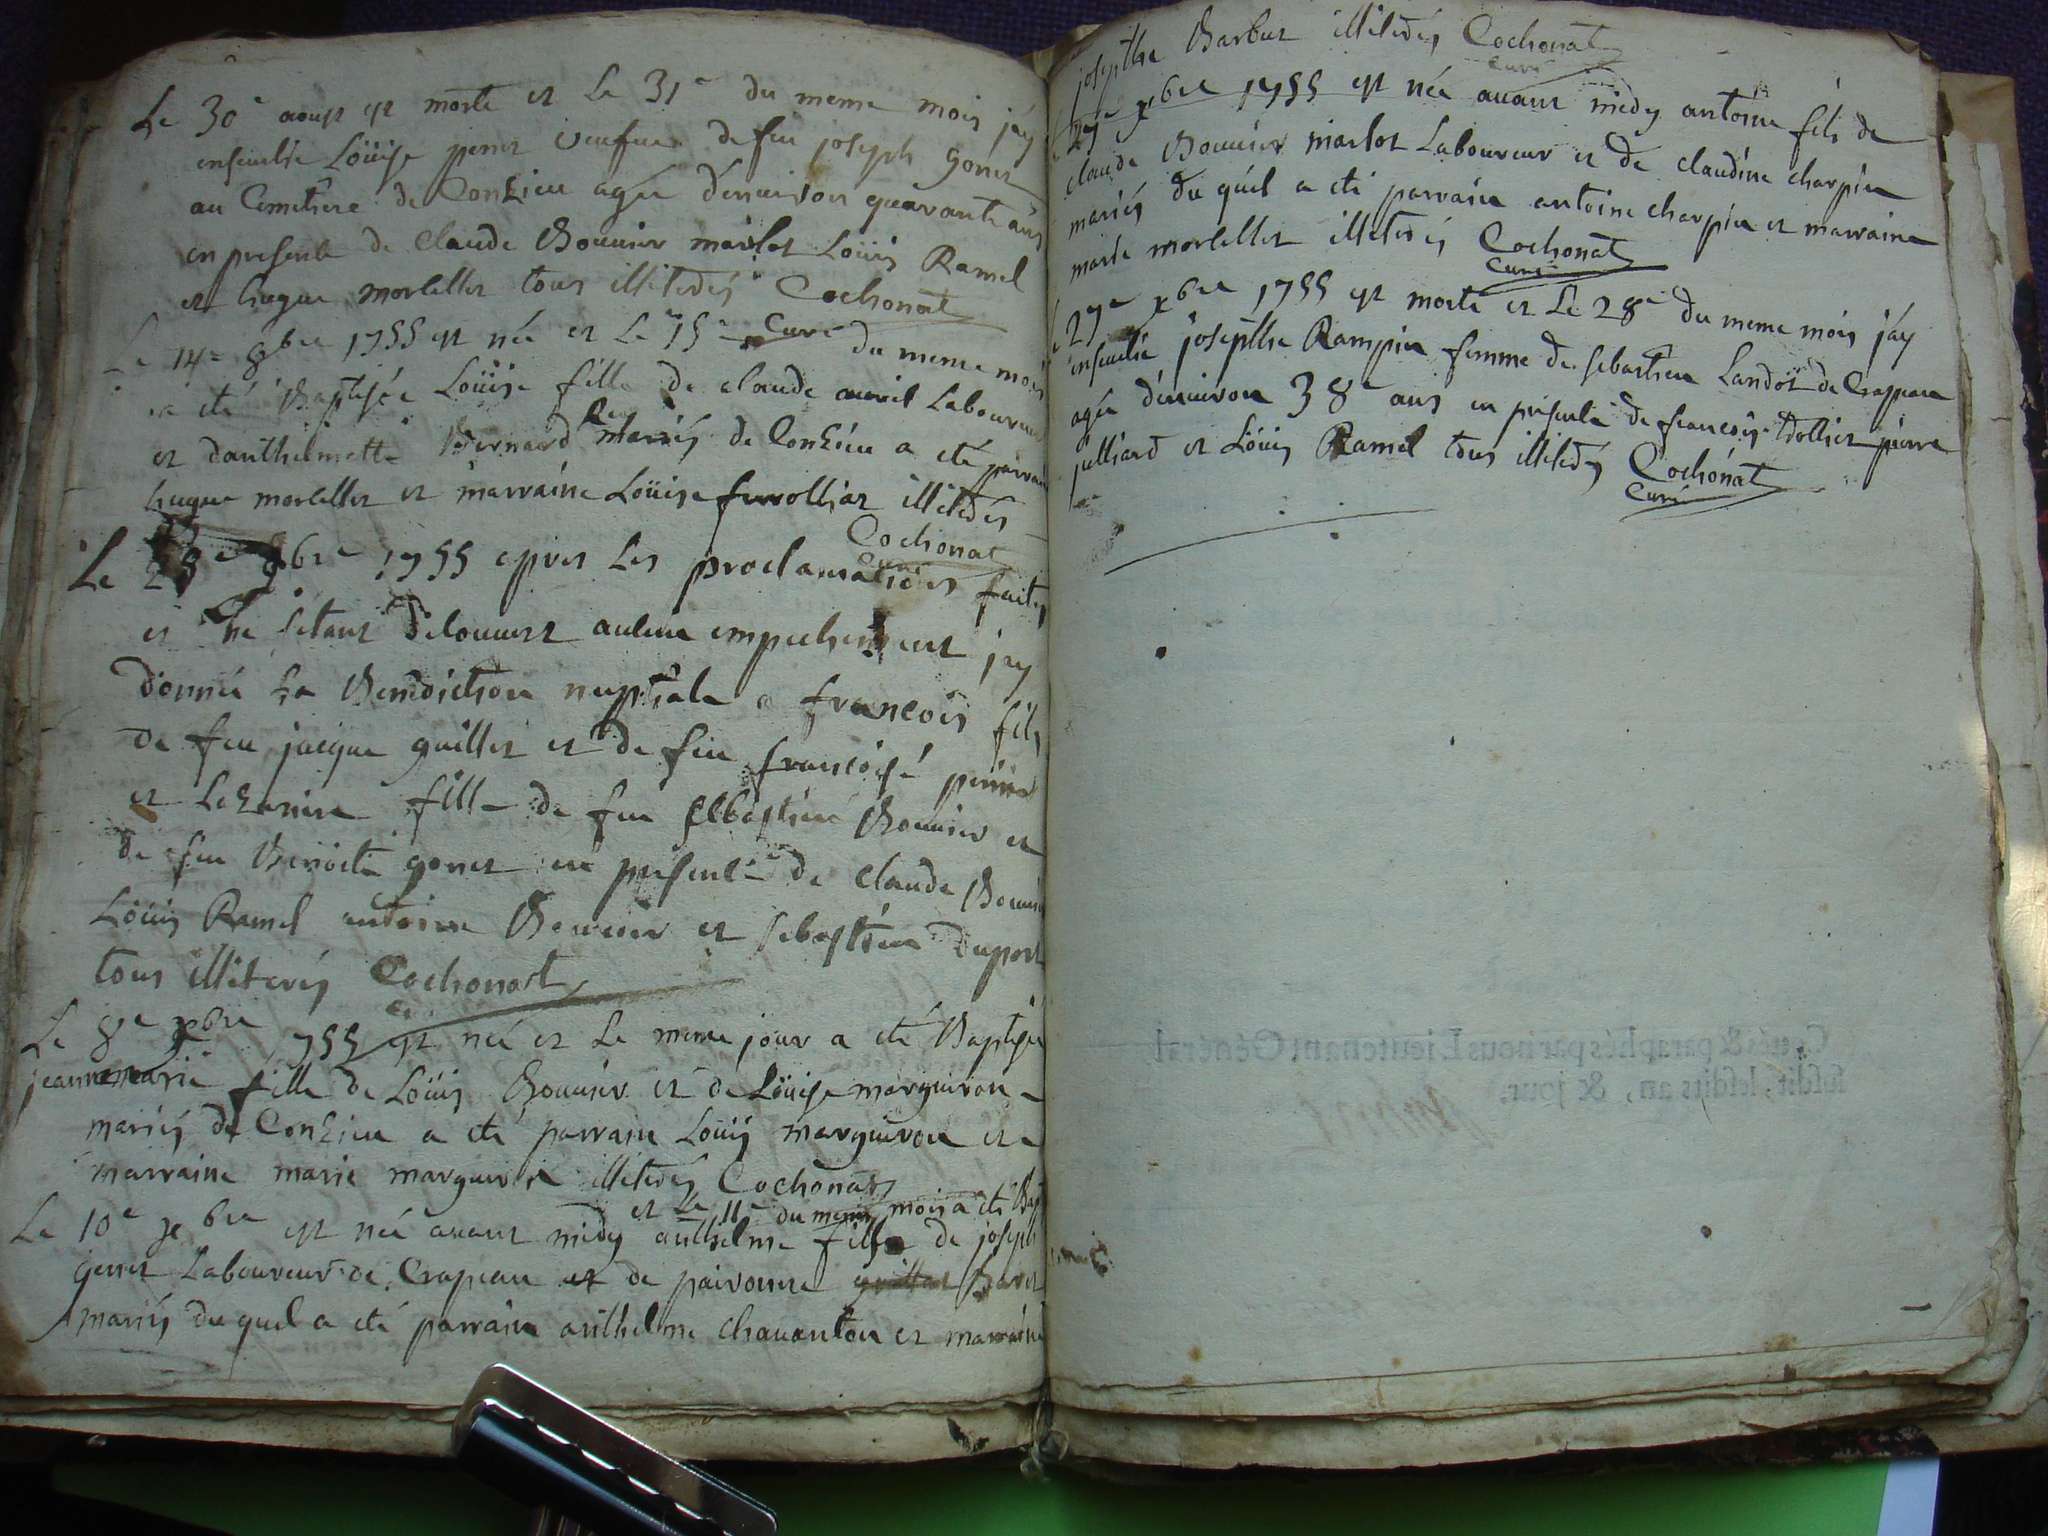 Le 30e aoust est morte et Le 31e du meme mois j'ay
ensevelie Loüise veufve de feu joseph gonet
au Cemetiere de Conzieu agée d'environ quarante ans
en presence de Claude Bouvier marlot Loüis Ramel
et hugue morcellet tous illiterés Cochonat
curé
Le 14e 8bre 1755 est née et Le 15e du meme mois
a eté Baptisée Loüise fille de claude Laboureur
et d'anthelmette Bernard mariés de Conzieu a eté parrain
hugue morcellet et marraine Loüise illiterés
Cochonat
curé
Le 1755 apres Les proclamations faites
et ne s'etant decouvert aucun empechement j'ay
donnée La Benediction nuptiale a francois fils
de feu jacque guillet et de feu francoise
et fille de feu Sebastien Bouvier et
de feu Benoite gonet en presence de Claude Bouvier
Loüis Ramel antoine Bouvier et sebastien duport
tous illiterés Cochonat
Le 8e xbre 1755 est née et Le meme jour a eté Baptisée
jeanne marie fille de Loüis Bouvier et de Loüise marguiron
mariés de Conzieu a eté parrain Loüis marguiron et
marraine marie marguiron illiterés Cochonat
et Le 11e du meme mois a eté Bapt
Le 10e xbre est né avant midy anthelme fils de joseph
genet Laboureur de Crapeau et de Baret
mariés du quel a eté parrain anthelme chavanton et marraine
josepthe Barbut illiterés Cochonat
curé
27e xbre 1755 est née avant midy antoine fils de
claude Bouvier marlot Laboureur et de claudine charpin
mariés du quel a eté parrain antoine charpin et marraine
marie morcellet illiterés Cochonat
curé
27e xbre 1755 est morte et Le 28e du meme mois j'ay
ensevelie josepthe Rampin femme de sebastien Landot de Crapeau
agée d'environ 38e ans en presence de francois pierre
julliard et Loüis Ramel tous illiterés Cochonat
curé
Cotés & paraphés par nous Lieutenant Général
susdit, lesdits an, & jour.